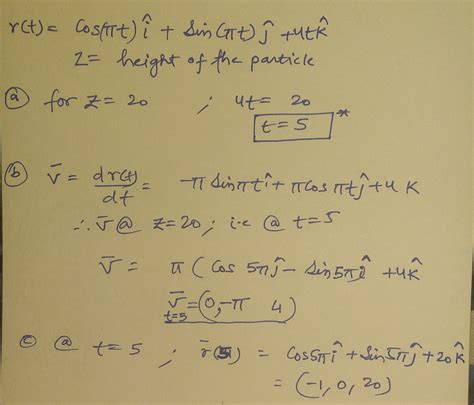 r(t) = Cos(πt) î + Sin(πt) ĵ + 4t k̂
Z = height of the particle
(a) for Z = 20 ; 4t = 20
t = 5 *
(b) v̄ = dr(t)/dt = -π Sin πt î + π Cos πt ĵ + 4 K
∴ v̄ @ Z=20; i.e @ t=5
v̄ = π ( Cos 5πĵ - Sin5πî + 4k̂
v̄ t=5 = (0, -π 4)
(c) @ t = 5 ; r̄(5) = Cos5πî + Sin5πĵ + 20k̂
= (-1, 0, 20)